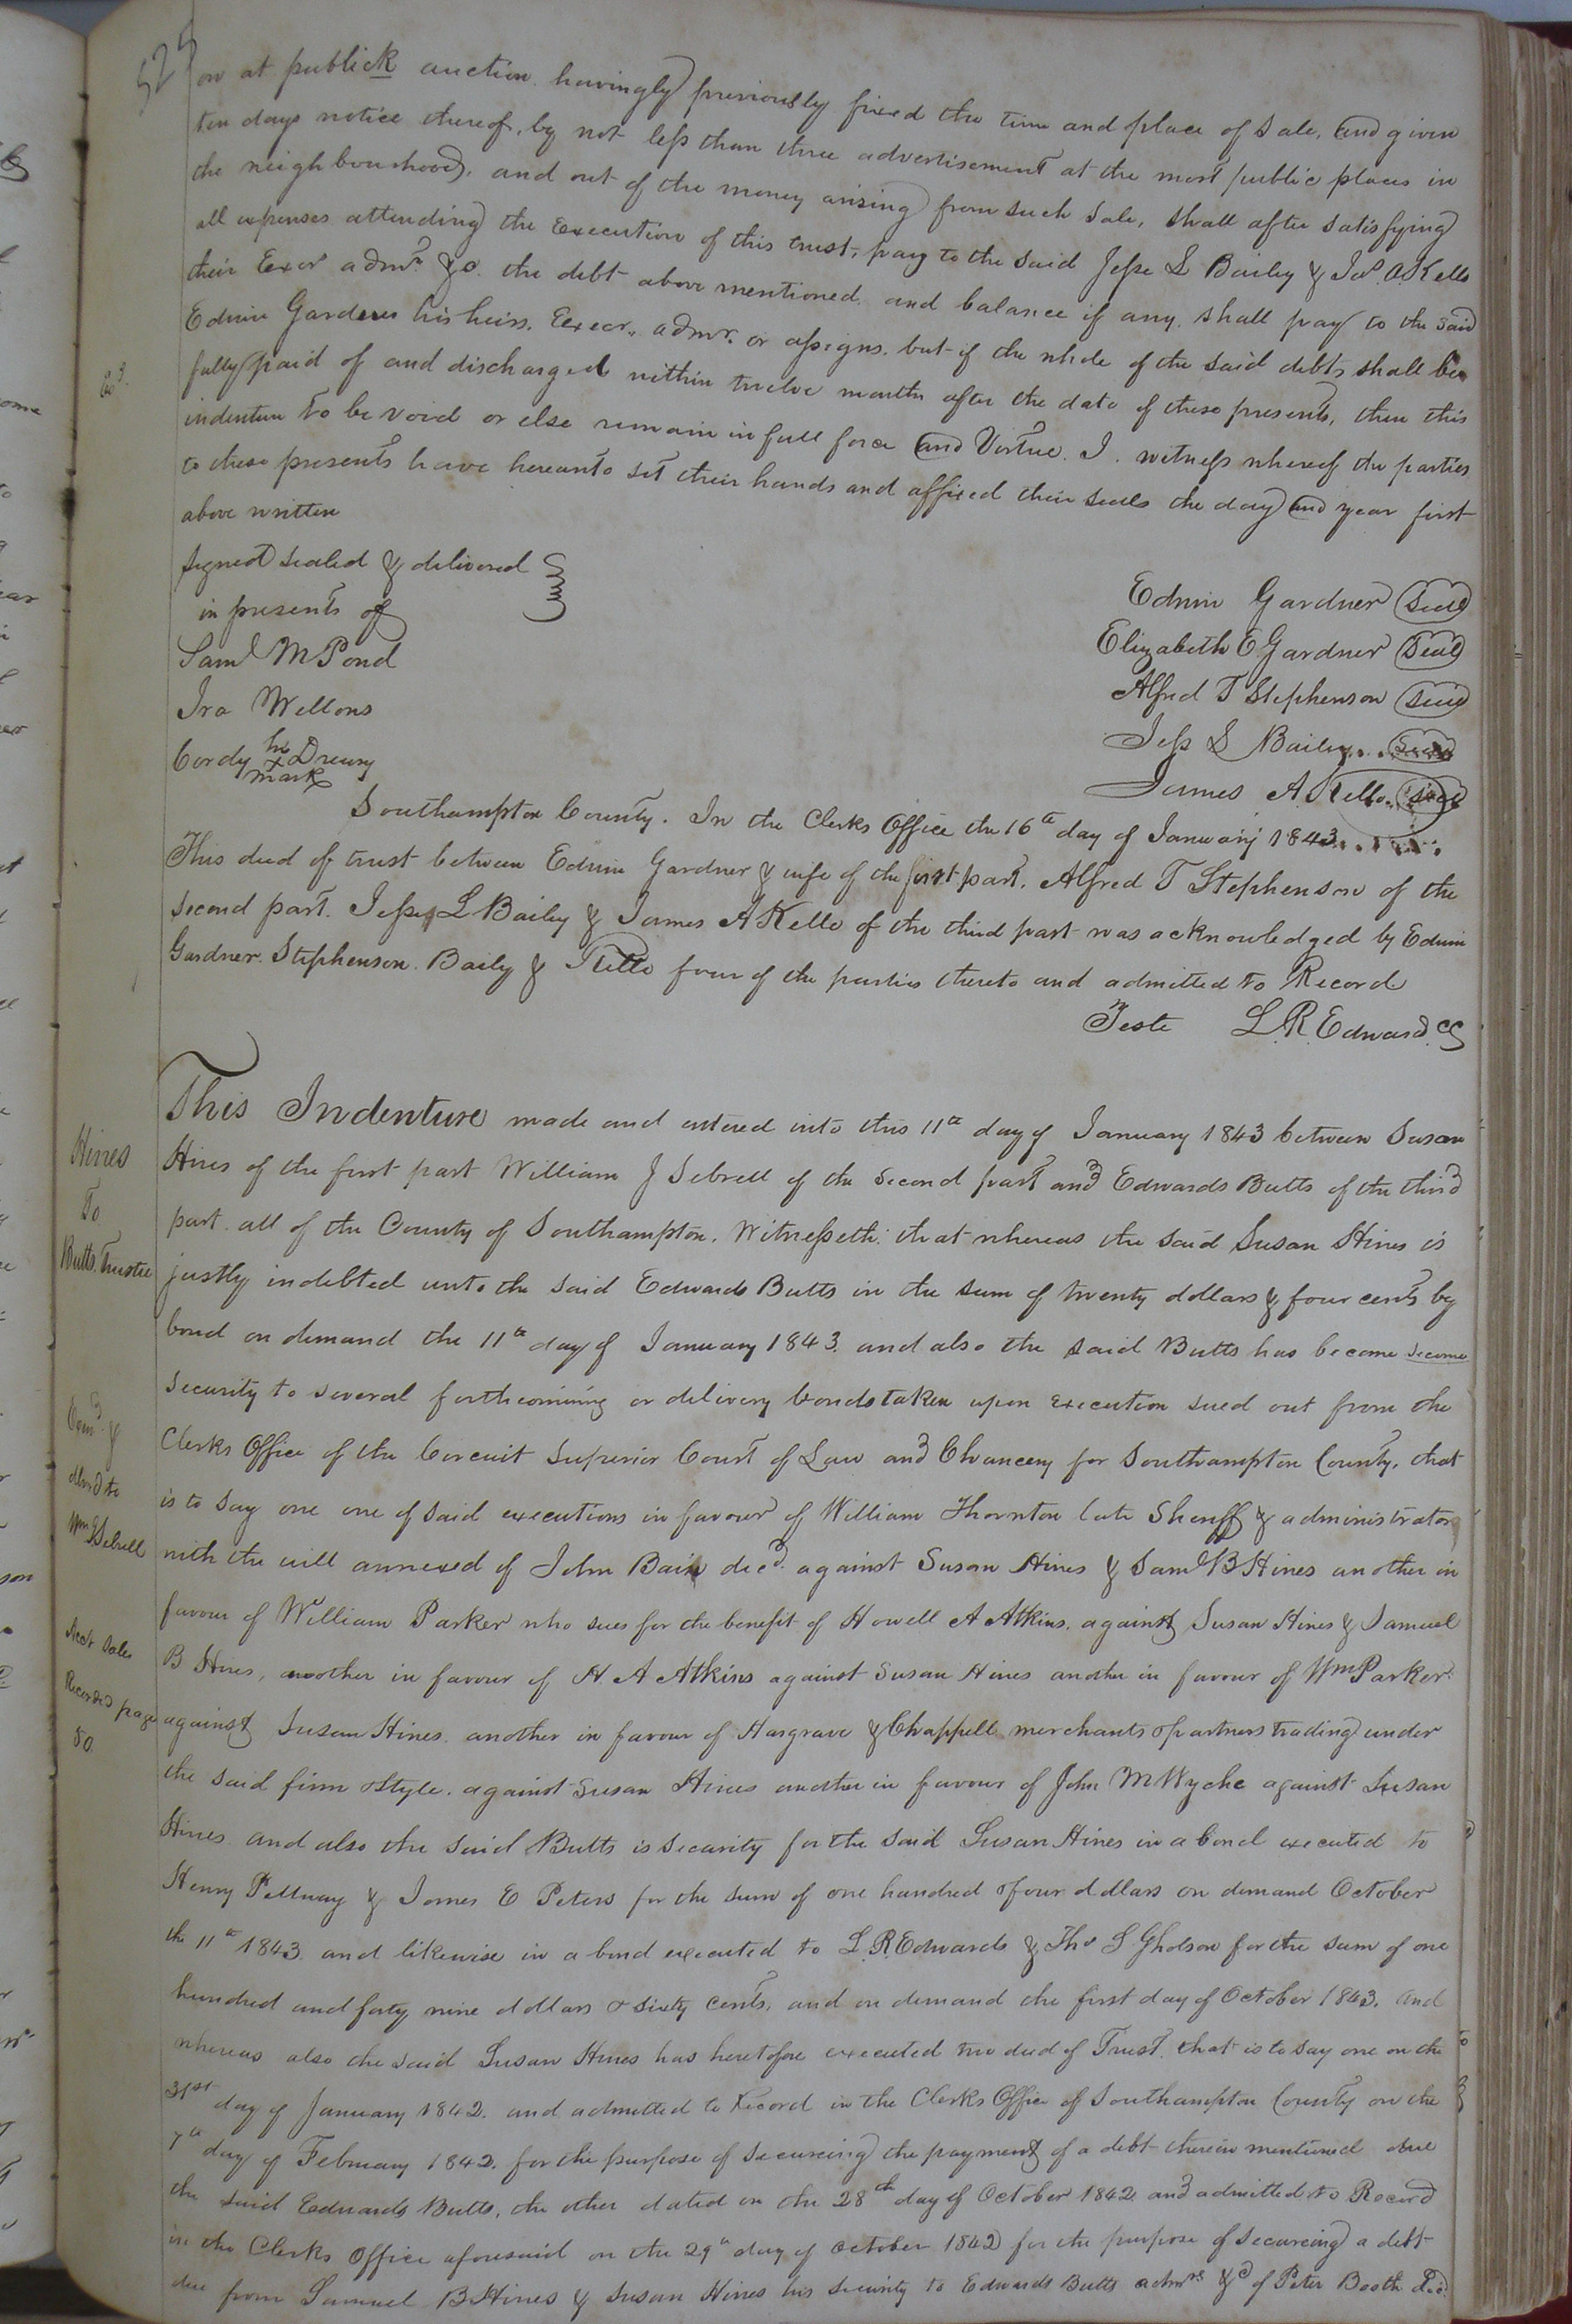 525
on at publick auction. havingly previously fixed the time and place of sale, and given
ten days notice thereof, by not less than three advertisement at the most public places in
the neighbourhood, and out of the money arising from such sale, shall after satisfying
all expenses attending the Execution of this trust, pay to the said Jesse L Bailey & Jas. A Kello
their Exor admr. &c. the debt above mentioned and balance if any shall pay to the said
Edwin Gardner his heirs. Execr. admr. or assigns. but if the whole of the said debts shall be
fully paid of and discharged within twelve months after the date of these presents, then this
indenture to be void or else remain in full force and Virtue. I. witness whereof the parties
to these presents have hereunto set their hands and affixed their seals the day and year first
above written
Signed sealed & delivered
in presents of
Saml M Pond
Ira Wellons
Cordy his x mark Dreury
Edwin Gardner Seal
Elizabeth E Gardner Seal
Alfred T Stephenson Seal
Jess L Bailey Seal
James A. Kello Seal
Southampton County. In the Clerks Office the 16th day of January 1843
This deed of trust between Edwin Gardner & wife of the first part, Alfred T Stephenson of the
second part. Jesse L Bailey & James A Kello of the third part was acknowledged by Edwin
Gardner. Stephenson. Baily & Kello four of the parties thereto and admitted to Record
Teste L. R. Edwards CC
Hines
To
Butts. Trustee
Exmd. &
delivd to
Wm J Sebrell
Acct sales
Recorded page
50.
This Indenture made and entered into this 11th day of January 1843 between Susan
Hines of the first part William J Sebrell of the second part and Edwards Butts of the third
part. all of the County of Southampton, Witnesseth: that whereas the said Susan Hines is
justly indebted unto the said Edwards Butts in the sum of twenty dollars & four cents by
bond on demand the 11th day of January 1843. and also the said Butts has become become
security to several forthcoming or delivery bonds taken upon execution sued out from the
Clerks Office of the Circuit Superior Court of Law and Chancery for Southampton County, that
is to say one one of said executions in favour of William Thornton late Sheriff & administrator
with the will annexed of John Bain decd. against Susan Hines & Saml B Hines another in
favour of William Parker who sues for the benefit of Howell A Atkins. against Susan Hines & Samuel
B Hines, another in favour of H. A Atkins against Susan Hines another in favour of Wm Parker
against Susan Hines. another in favour of Hargrave & Chappell merchants & partners trading under
the said firm & Style. against Susan Hines another in favour of John M Wyche against Susan
Hines and also the said Butts is security for the said Susan Hines in a bond executed to
Henry Pettway & James E Peters for the sum of one hundred & four dollars on demand October
the 11th 1843. and likewise in a bond executed to L. R. Edwards & Thos S Gholson for the sum of one
hundred and forty nine dollars & sixty cents, and on demand the first day of October 1843. And
whereas also the said Susan Hines has heretofore executed two deed of Trust. that is to say one on the
31st day of January 1842. and admitted to record in the Clerks Office of Southampton County on the
7th day of February 1842. for the purpose of securcing the payment of a debt therein mentioned due
the said Edwards Butts, the other dated on the 28th day of October 1842 and admitted to Record
in the Clerks Office aforesaid on the 29th day of October 1842 for the purpose of securcing a debt
due from Samuel B Hines & Susan Hines his security to Edwards Butts admrs &c of Peter Booth decd.